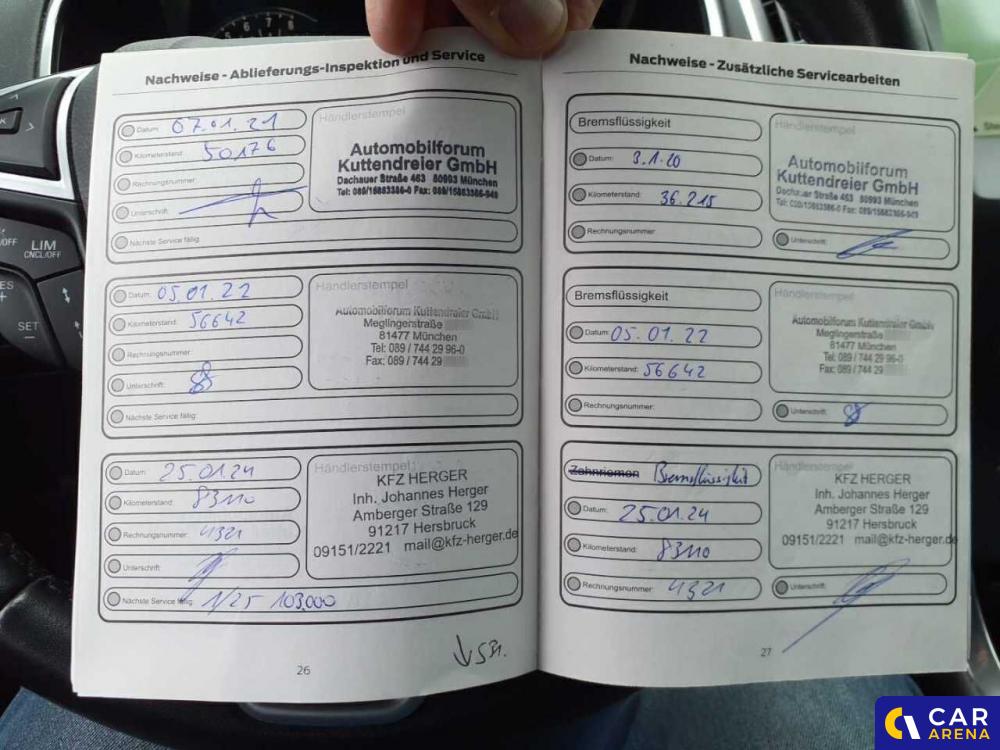 Nachweise - Ablieferungs-Inspektion und Service
Datum: 07.01.21
Kilometerstand: 50176
Rechnungsnummer:
Unterschrift:
Nächste Service fällig:
Händlerstempel
Automobilforum
Kuttendreier GmbH
Dachauer Straße 463 80993 München
Tel: 089/15883386-0 Fax: 089/15883386-949
Datum: 05.01.22
Kilometerstand: 56642
Rechnungsnummer:
Unterschrift:
Nächste Service fällig:
Händlerstempel
Automobilforum Kuttendreier GmbH
Meglingerstraße
81477 München
Tel: 089 / 744 29 96-0
Fax: 089 / 744 29
Datum: 25.01.24
Kilometerstand: 83110
Rechnungsnummer: 4321
Unterschrift:
Nächste Service fällig: 1/25 103.000
Händlerstempel
KFZ HERGER
Inh. Johannes Herger
Amberger Straße 129
91217 Hersbruck
09151/2221 mail@kfz-herger.de
26
Nachweise - Zusätzliche Servicearbeiten
Bremsflüssigkeit
Datum: 3.1.20
Kilometerstand: 36.215
Rechnungsnummer:
Händlerstempel
Automobilforum
Kuttendreier GmbH
Dachauer Straße 463 80993 München
Tel: 089/15883386-0 Fax: 089/15883386-949
Unterschrift:
Bremsflüssigkeit
Datum: 05.01.22
Kilometerstand: 56642
Rechnungsnummer:
Händlerstempel
Automobilforum Kuttendreier GmbH
Meglingerstraße
81477 München
Tel: 089 / 744 29 96-0
Fax: 089 / 744 29
Unterschrift:
Zahnriemen Bremsflüssigkeit
Datum: 25.01.24
Kilometerstand: 83110
Rechnungsnummer: 4321
Händlerstempel
KFZ HERGER
Inh. Johannes Herger
Amberger Straße 129
91217 Hersbruck
09151/2221 mail@kfz-herger.de
Unterschrift:
27
LIM
CNCL/OFF
SET
CAR
ARENA